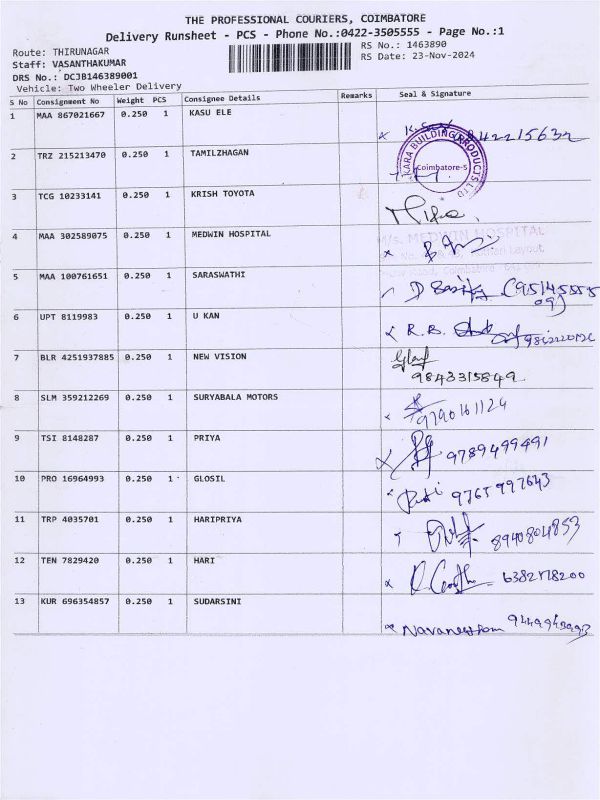 THE PROFESSIONAL COURIERS, COIMBATORE
Delivery Runsheet - PCS - Phone No.:0422-3505555 - Page No.:1
Route: THIRUNAGAR
RS No.: 1463890
Staff: VASANTHAKUMAR
RS Date: 23-Nov-2024
DRS No.: DCJB146389001
Vehicle: Two Wheeler Delivery
S No Consignment No Weight PCS Consignee Details Remarks Seal & Signature
1 MAA 867021667 0.250 1 KASU ELE
KARA BUILDING PRODUCTS LTD
Coimbatore-5
2 TRZ 215213470 0.250 1 TAMILZHAGAN
3 TCG 10233141 0.250 1 KRISH TOYOTA
4 MAA 302589075 0.250 1 MEDWIN HOSPITAL
M/s. MEDWIN HOSPITAL
5 MAA 100761651 0.250 1 SARASWATHI
6 UPT 8119983 0.250 1 U KAN R.B.
7 BLR 4251937885 0.250 1 NEW VISION
9843315849
8 SLM 359212269 0.250 1 SURYABALA MOTORS 9790161124
9 TSI 8148287 0.250 1 PRIYA 9789499491
10 PRO 16964993 0.250 1 GLOSIL 9765997643
11 TRP 4035701 0.250 1 HARIPRIYA 8940804853
12 TEN 7829420 0.250 1 HARI
13 KUR 696354857 0.250 1 SUDARSINI